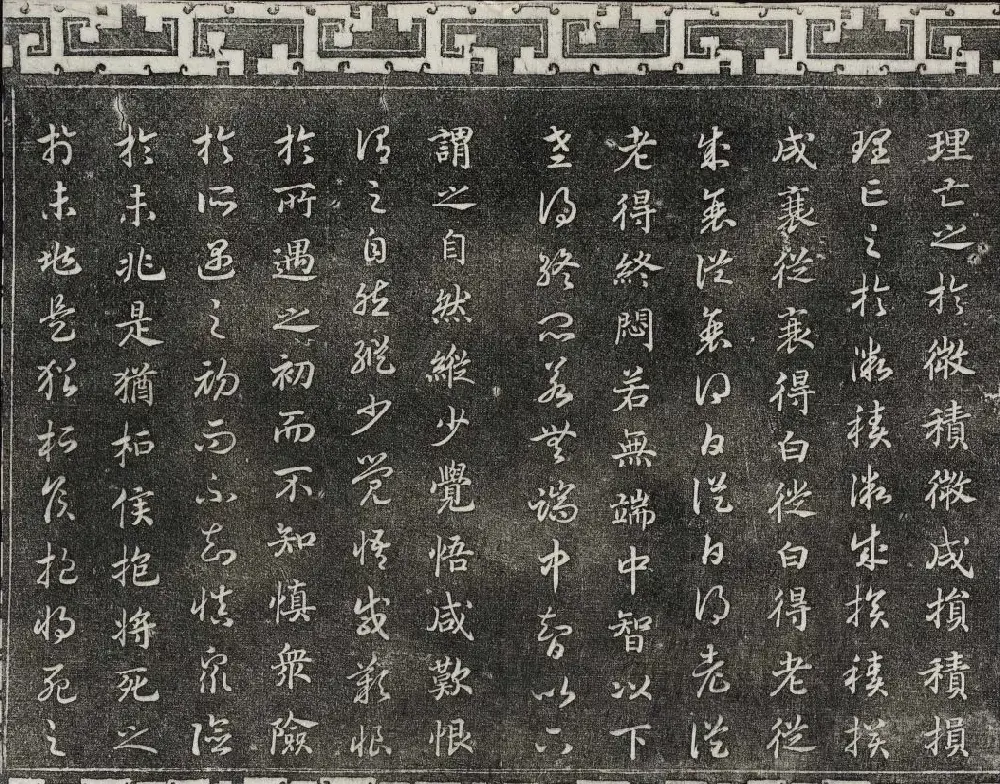 理亡之於微積微成損積損
理亡之於微積微成損積損
成衰從衰得白從白得老從
成衰從衰得白從白得老從
老得終悶若無端中智以下
老得終悶若無端中智以下
謂之自然縱少覺悟咸歎恨
謂之自然縱少覺悟咸歎恨
於所遇之初而不知慎眾險
於所遇之初而不知慎眾險
於未兆是猶桓侯抱將死之
於未兆是猶桓侯抱將死之